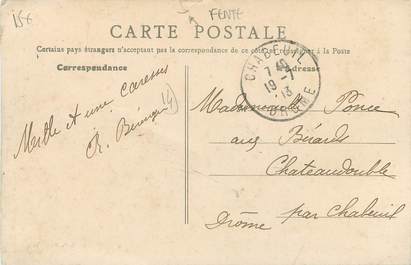 15€
FENTE
CARTE POSTALE
Certains pays étrangers n'acceptant pas la correspondance de ce côté, se renseigner à la Poste
Correspondance
Adresse
CHABEUIL
7 40
19 -7
13
DROME
Mille et une caresses
Mademoiselle Ponce
aux Bérards
Chateaudouble
par Chabeuil
Drôme